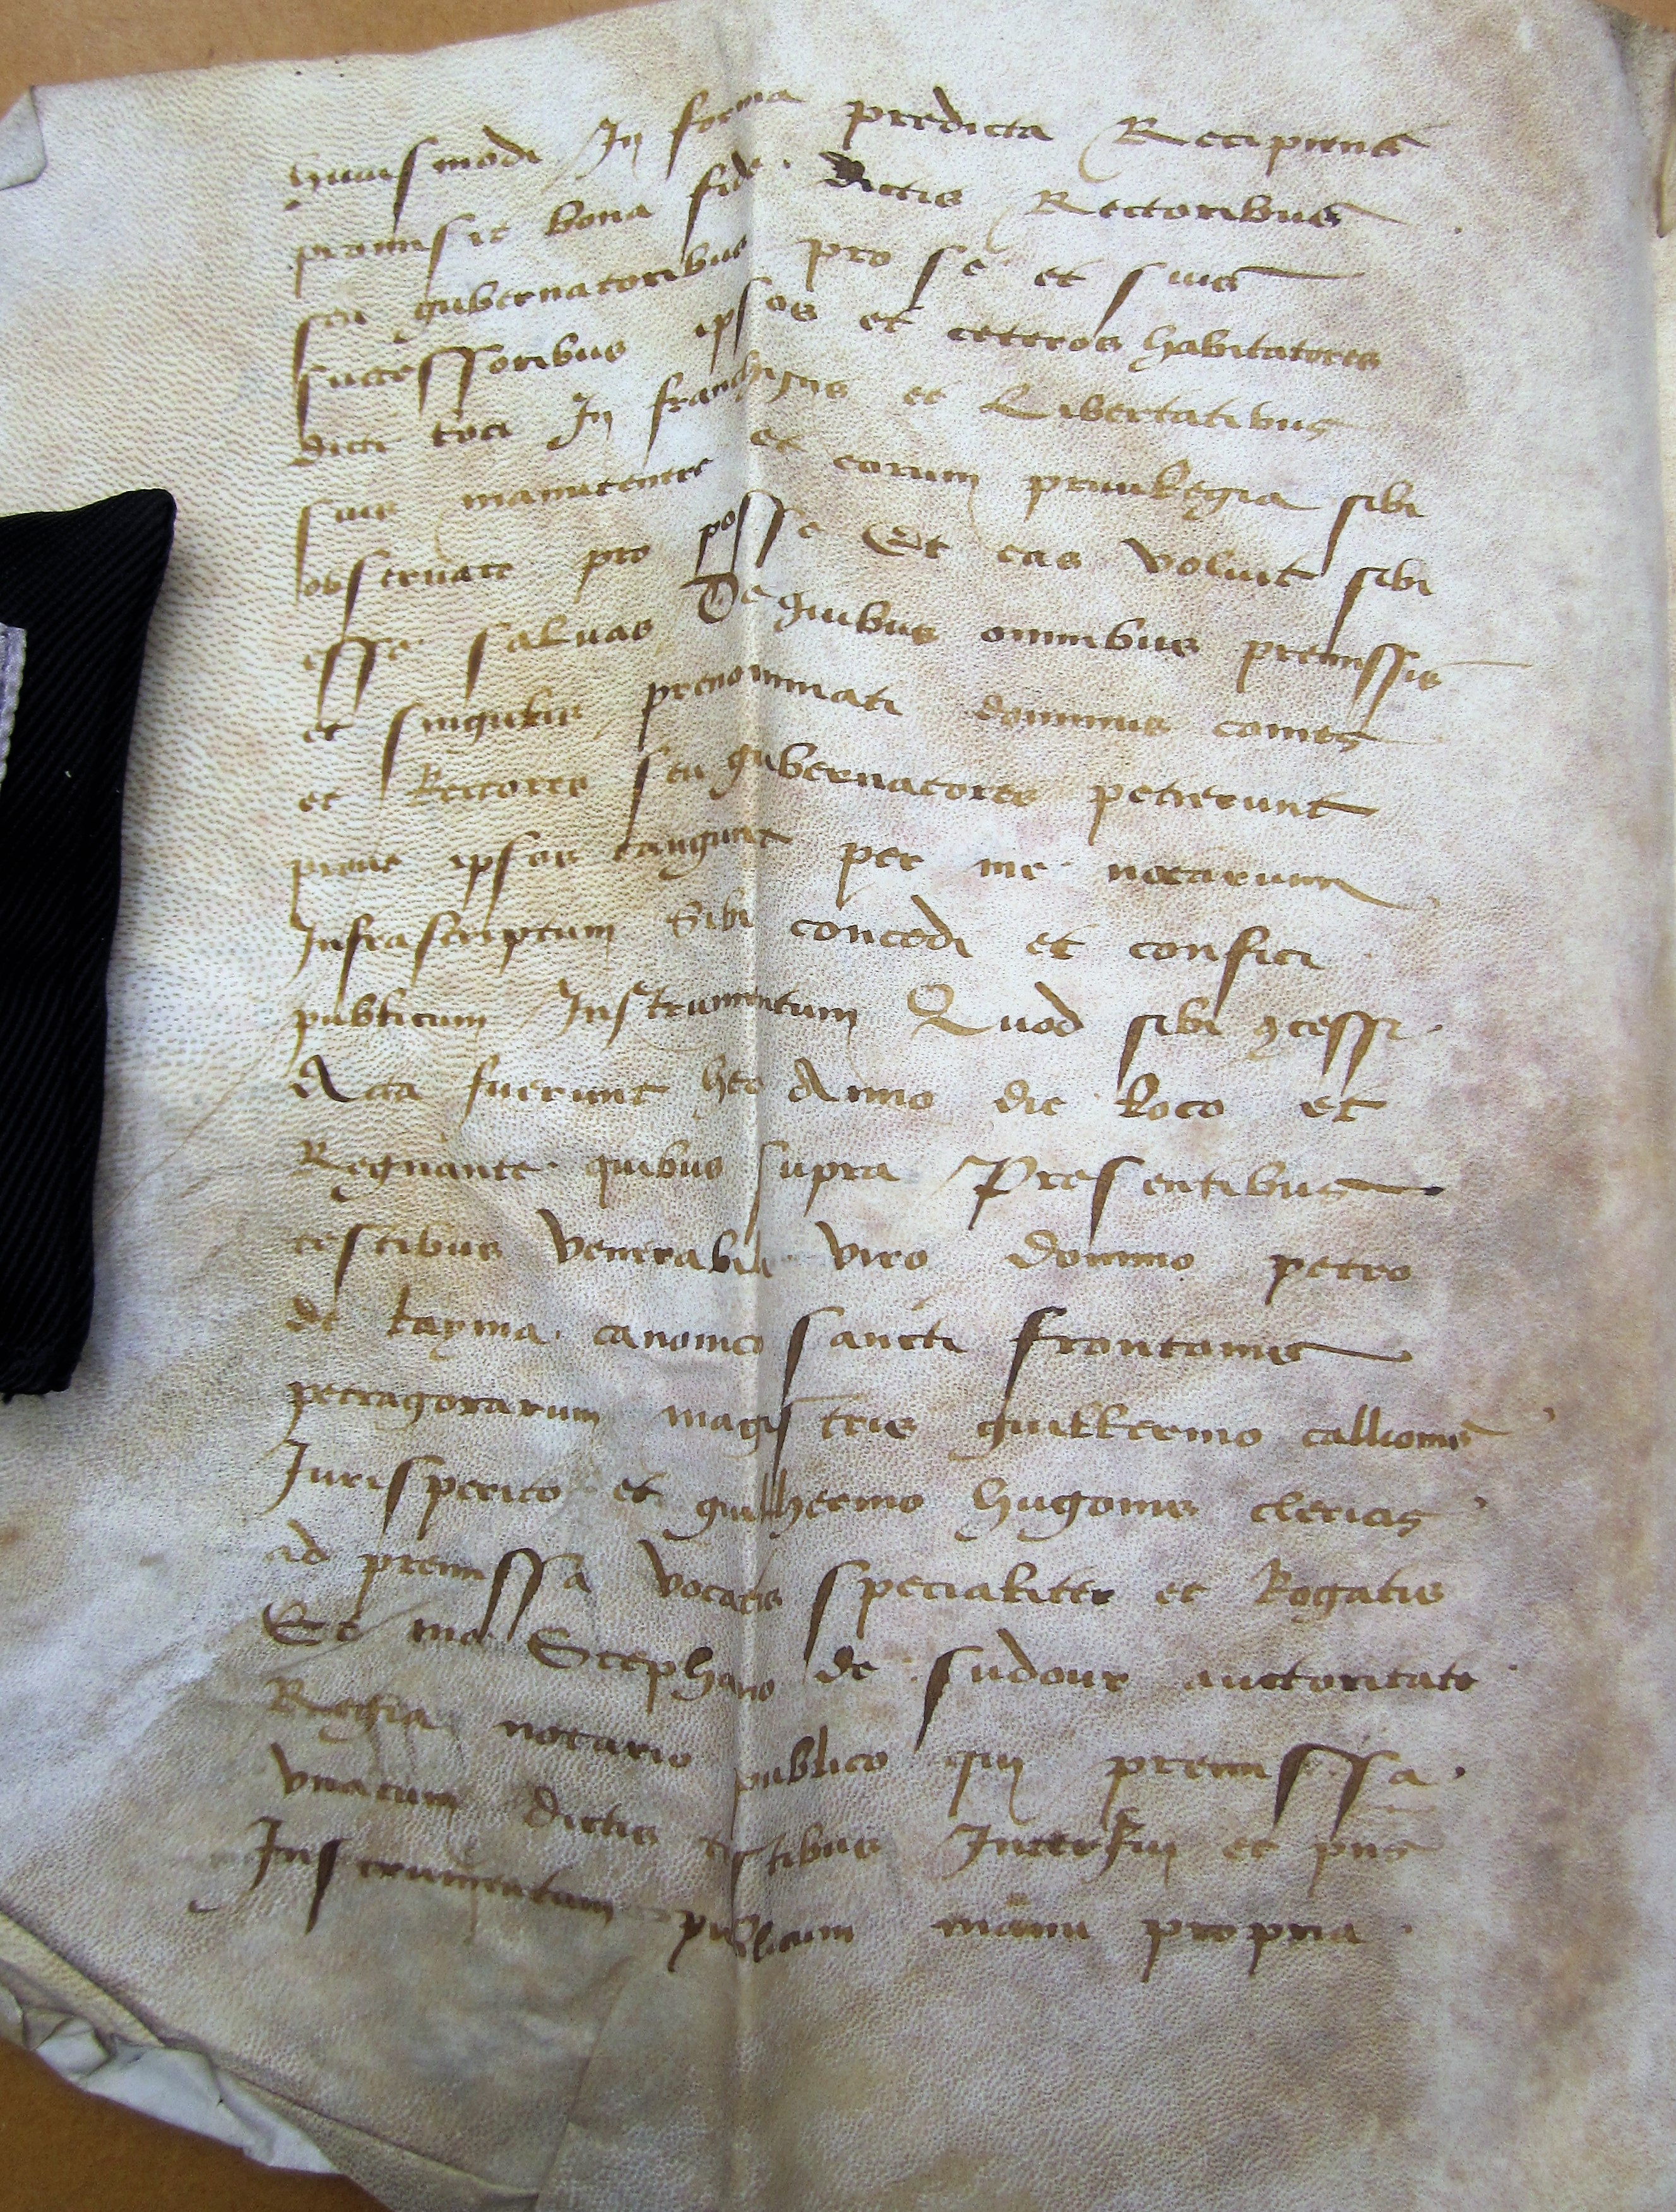 huiusmodi In forma predicta Recipiens
promisit bona fide dictis Rectoribus
seu gubernatoribus pro se et suis
successoribus ipsos et ceteros habitatores
dicti loci In franchigiis et Libertatibus
suis manutenere et eorum privilegia sibi
observare pro posse Et eas voluit sibi
esse salvas De quibus omnibus premissis
et singulis prenominati dominus comes
et Rectores seu gubernatores petierunt
prout ipsos tangunt per me notarium
Infrascriptum Sibi concedi et confici
publicum Instrumentum Quod sibi ꝯcessi
Acta fuerunt hec Anno die loco et
Regnante quibus supra Presentibus
testibus venerabili viro domino petro
de canonico sancti frontonis
petragorarum magistris guillermo
Jurisperito et guilhermo hugonis clericis
ad premissa vocatis specialiter et Rogatis
Et me Stephano de sudour auctoritate
Regia notario publico qui premissa
unacum dictis testibus Interfui et pns
Instrumentum publicum manu propria